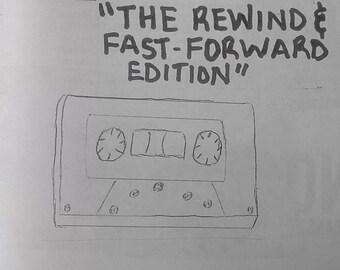 "THE REWIND &
FAST-FORWARD
EDITION"